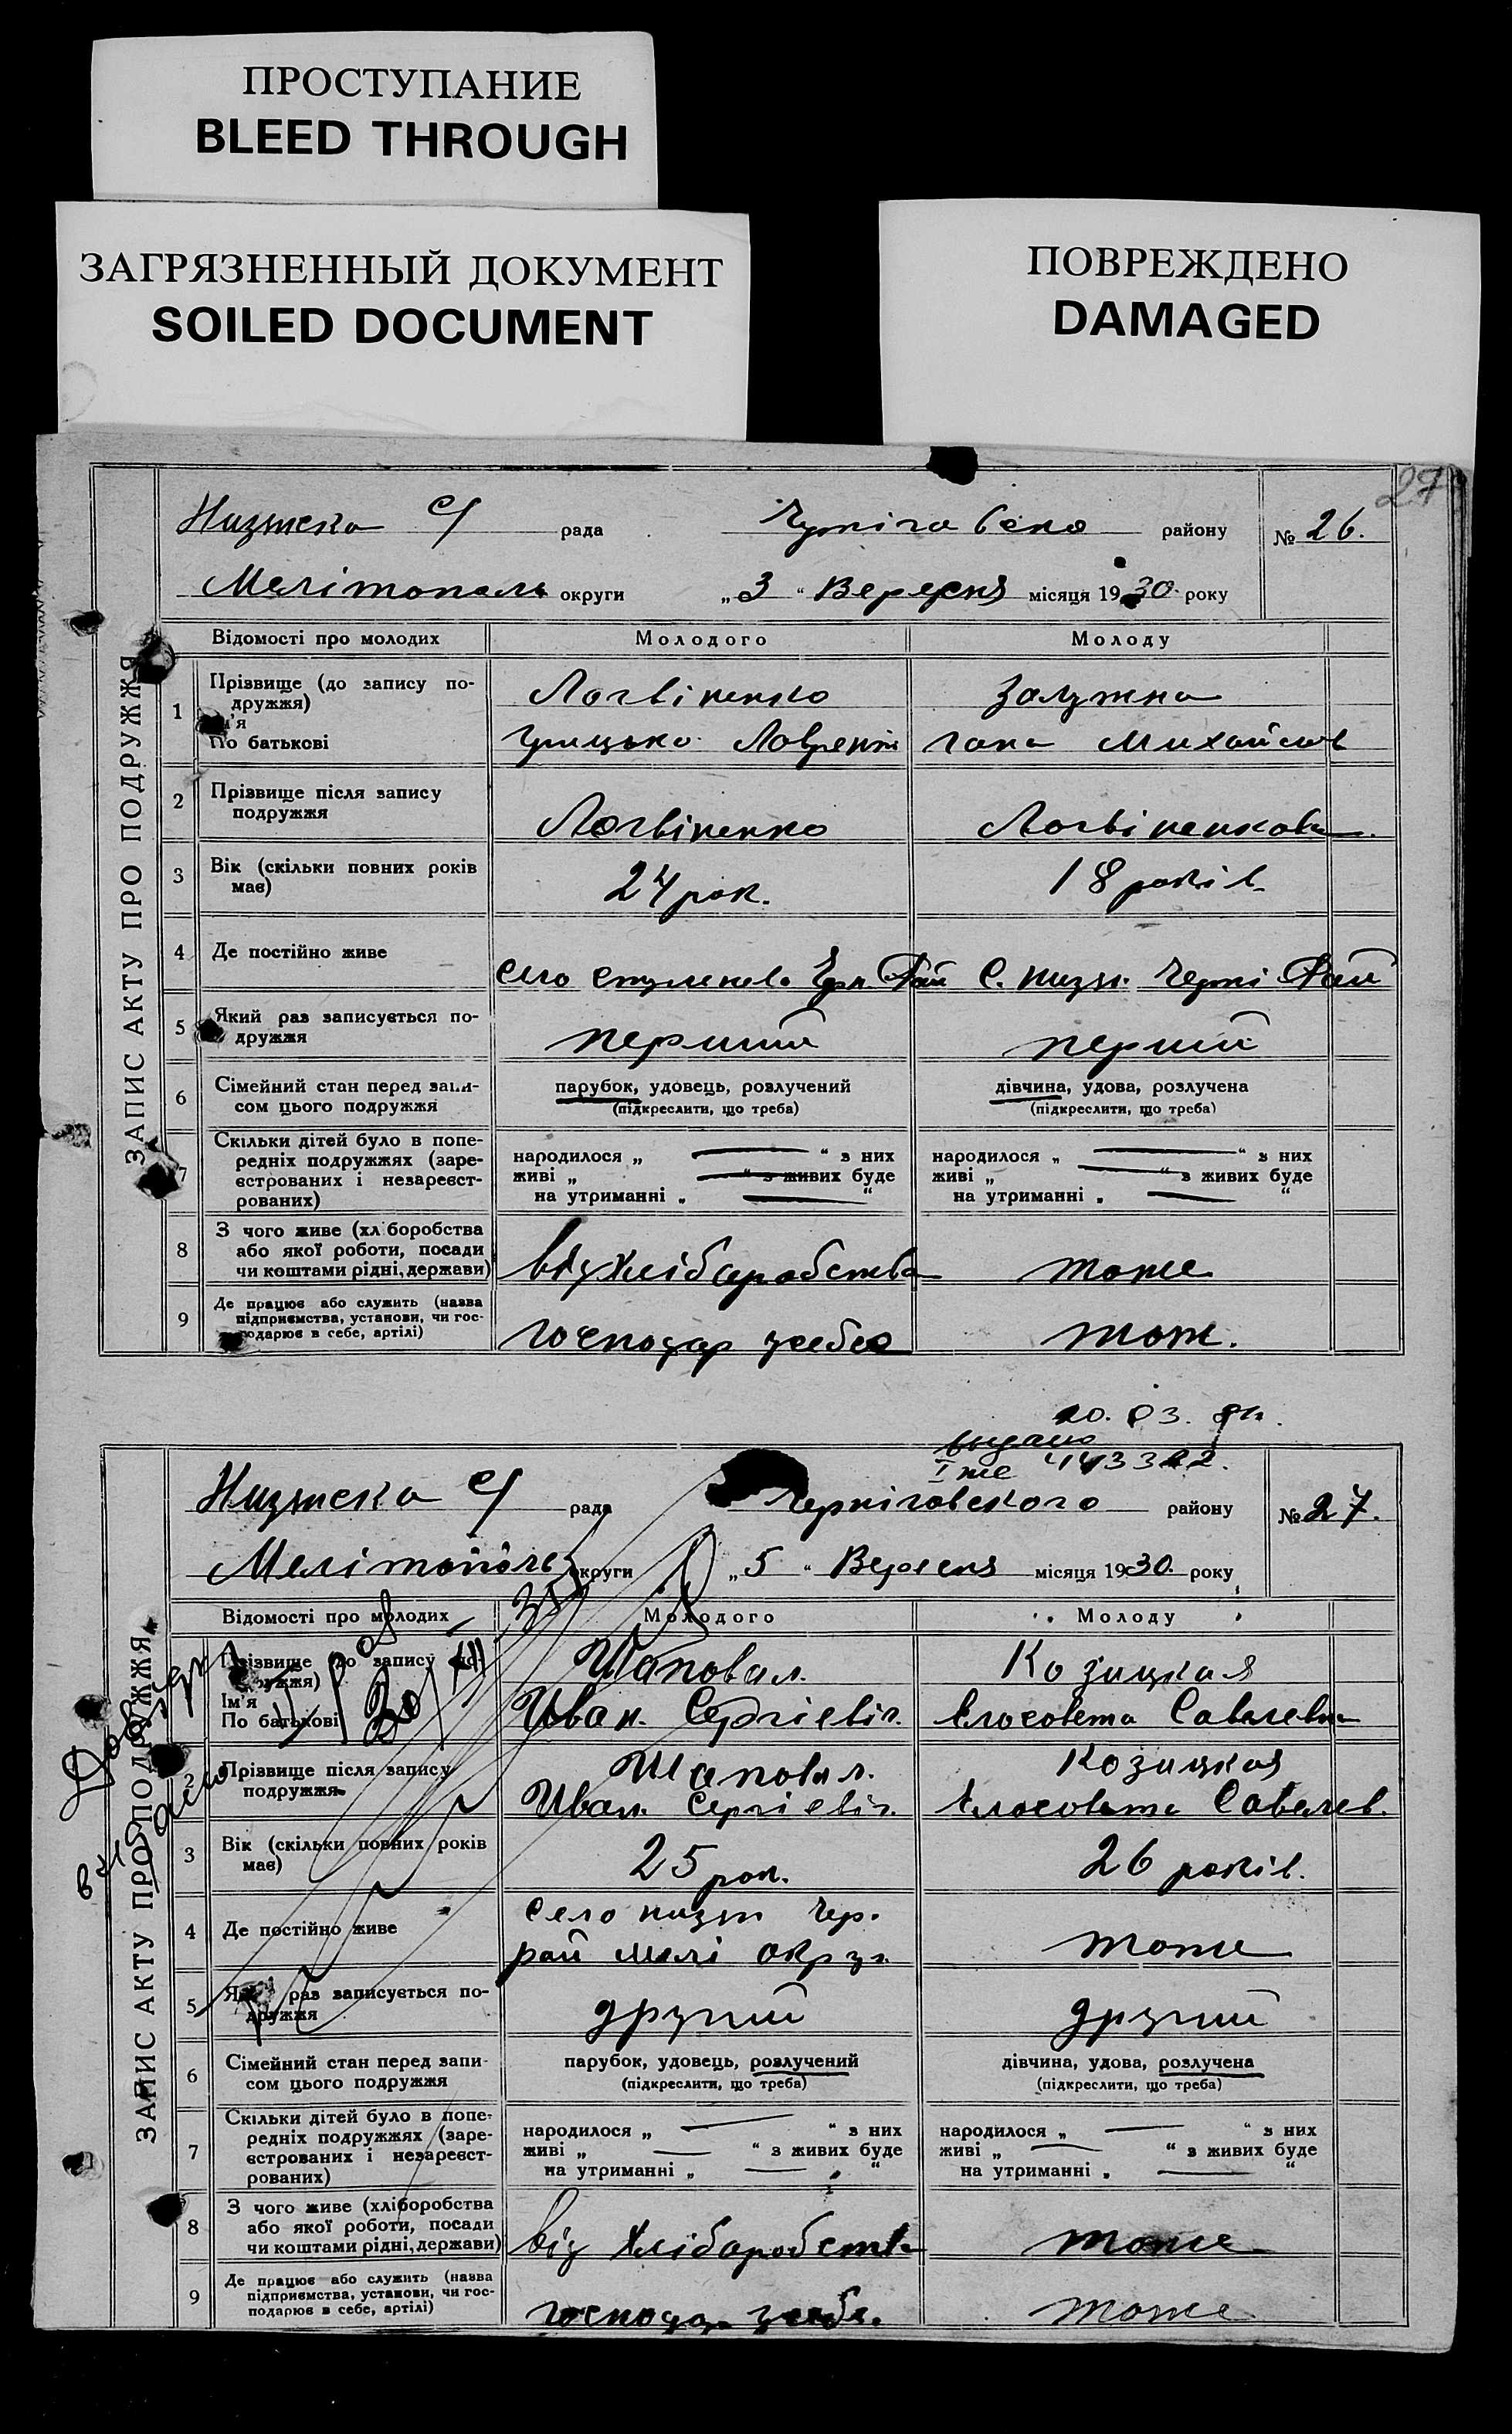 ПРОСТУПАНИЕ
BLEED THROUGH
ЗАГРЯЗНЕННЫЙ ДОКУМЕНТ
SOILED DOCUMENT
ПОВРЕЖДЕНО
DAMAGED
27
ЗАПИС АКТУ ПРО ПОДРУЖЖЯ
Низяска с/ рада району № 26.
Мелітополь округи „3“ Вересня місяця 1930 року
Відомості про молодих Молодого Молоду
1 Прізвище (до запису по-
дружжя) Логвіненко Залужна
Ім'я
По батькові Грицько Лаврент гана Михайлов
2 Прізвище після запису
подружжя Логвіненко Логвіненкова
3 Вік (скільки повних років
має) 24 рок. 18 років
4 Де постійно живе село Рай С. Черні Рай
5 Який раз записується по-
дружжя перший перший
6 Сімейний стан перед запи-
сом цього подружжя
парубок, удовець, розлучений
(підкреслити, що треба)
дівчина, удова, розлучена
(підкреслити, що треба)
7 Скільки дітей було в попе-
редніх подружжях (заре-
єстрованих і незареєст-
рованих)
народилося „ “ з них
живі „ “ з живих буде
на утриманні „ “
народилося „ “ з них
живі „ “ з живих буде
на утриманні „ “
8 З чого живе (хліборобства
або якої роботи, посади
чи коштами рідні, держави) від хліборобства тоже
9 Де працює або служить (назва
підприємства, установи, чи гос-
подарює в себе, артілі) господар усебе тож.
выдано
443322.
ЗАПИС АКТУ ПРО ПОДРУЖЖЯ
Низяска с/ рада Черніговского району № 27.
Мелітополь округи „5“ Вересня місяця 1930 року
Відомості про молодих Молодого Молоду
Прізвище (до запису по-
дружжя) Шаповал. Козицкая
Ім'я
По батькові Иван. Сергієвіч. Єлосовета Савелевна
2 Прізвище після запису
подружжя Шаповал. Козицкая
Иван. Сергієвіч. Єлосовета Савелев.
3 Вік (скільки повних років
має) 25 рок. 26 років.
4 Де постійно живе село Чер.
рай Мелі окру. тоже
5 Який раз записується по-
дружжя другий другий
6 Сімейний стан перед запи-
сом цього подружжя
парубок, удовець, розлучений
(підкреслити, що треба)
дівчина, удова, розлучена
(підкреслити, що треба)
7 Скільки дітей було в попе-
редніх подружжях (заре-
єстрованих і незареєст-
рованих)
народилося „ “ з них
живі „ “ з живих буде
на утриманні „ “
народилося „ “ з них
живі „ “ з живих буде
на утриманні „ “
8 З чого живе (хліборобства
або якої роботи, посади
чи коштами рідні, держави) від хліборобств тоже
9 Де працює або служить (назва
підприємства, установи, чи гос-
подарює в себе, артілі) господар усебе. тоже